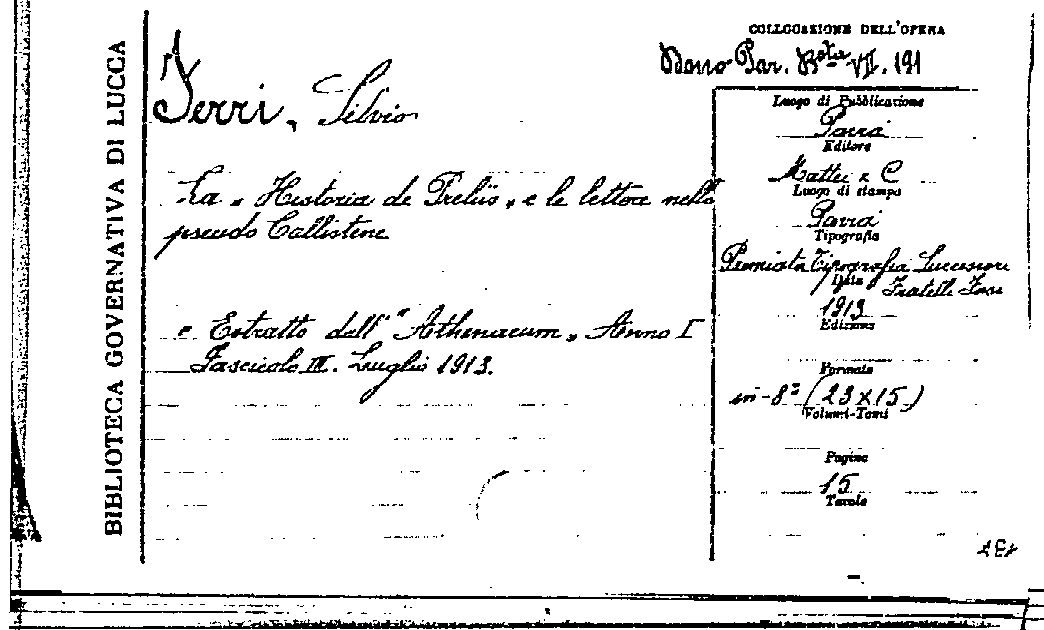 BIBLIOTECA GOVERNATIVA DI LUCCA
COLLOCAZIONE DELL'OPERA
Dono Par. Bta VII. 191
Ferri, Silvio
La „ Historia de Preliis „ e le lettere nello
pseudo Callistene
e Estratto dell' "Athenaeum „ Anno I
Fascicolo III. Luglio 1913.
Luogo di Pubblicazione
Pavia
Editore
Mattei e C
Luogo di stampa
Pavia
Tipografia
Premiata Tipografia Successori
Data
Fratelli Fusi
1913
Edizione
Formato
in-8° (23x15)
Volumi-Tomi
Pagine
15
Tavole